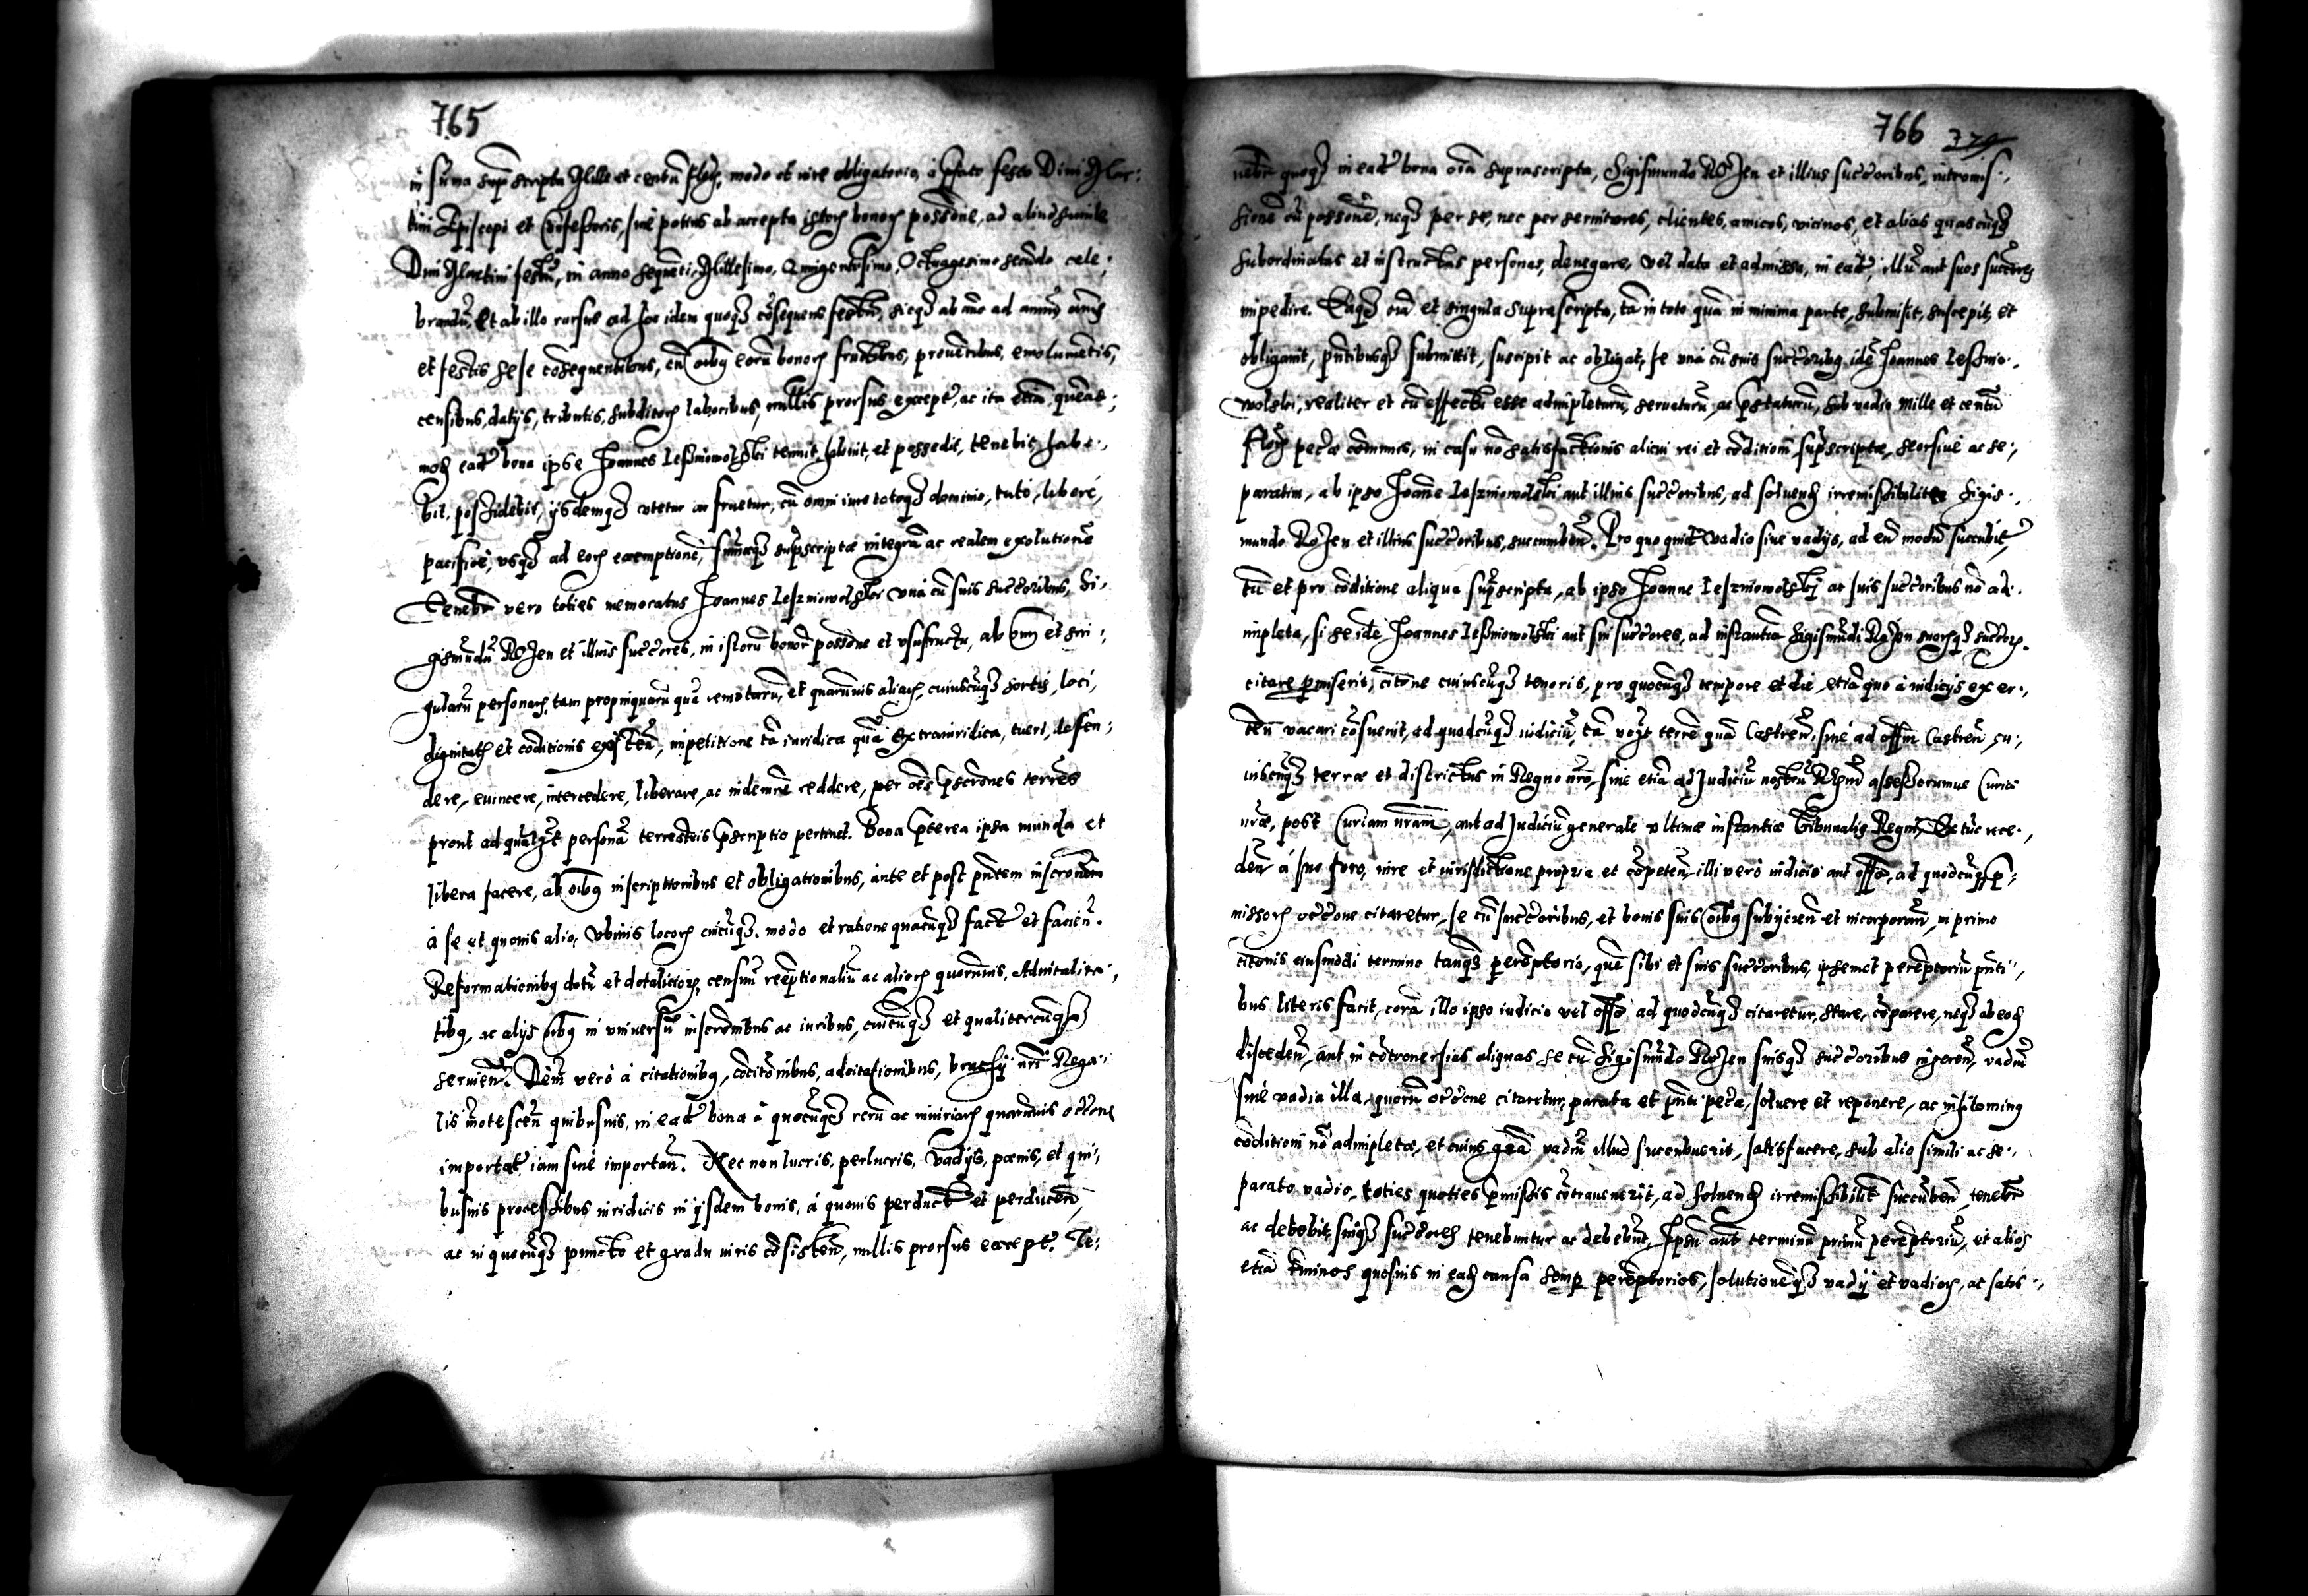 765
in suma supra scripta Mille et centũ floꝝ, modo et iure obligatorio, a p̃fato festo Diui Mar:
tini Episcopi et Cõfessoris, siue potius ab accepta istoꝝ bonoꝝ possõne, ad aliud simile
Diui Martini festũ, in anno sequẽti, Millesimo, Quingentesimo, Octuagesimo secũdo cele:
brandũ, Et ab illo rursus ad hoc idem quoqʒ cõsequens festũ, sicqʒ ab ãno ad annũ annis
et festis sese cõsequentibus, cũ oĩbg eorũ bonoꝝ fructibus, prouẽtibus, emolumẽtis,
censibus, datijs, tributis, subditoꝝ laboribus, nullis prorsus except̃, ac ita etiã, quẽad:
moď ead̃ bona ipse Joannes Lesniowolski tenuit, habuit, et possedit, tenebit, habe:
bit, possidebit, ijsdemqʒ utetur ac fruetur, cũ omni iure totoqʒ dominio, tutò, liberè,
pacificè, usqʒ ad eoꝝ exemptionẽ, sũmæqʒ suprascriptæ integrã ac realem exolutionẽ
Tenebit̃ vero toties memoratus Joannes Leszniowolski vnà cũ suis succčoribus, Si:
gismũdũ Rożen et illius succčores, in istorũ bonoꝝ possõne et vsufructu, ab oĩm et sin:
gularũ personaꝝ, tam propinquarũ quã remotarũ, et quarumuis aliaꝝ, cuiuscũqʒ sortis, loci,
dignitatis et conditionis existeñ, impetitione tã iuridica quã extraiuridica, tueri, defen:
dere, euincere, intercedere, liberare, ac indemnẽ reddere, per oẽs p̃scr̃ones terr̃es
prout ad quãlꝫt personã terrestris p̃scriptio pertinet. Bona p̃terea ipsa munda et
libera facere, ab oĩbg inscriptionibus et obligationibus, ante et post p̃ntem inscr̃onem
à se et quouis alio, vbiuis locoꝝ cuicũqʒ. modo et ratione quacũqʒ fact̃ et facień.
Reformationibg dotũ et dotalicioꝝ, censuũ reẽptionaliũ ac alioꝝ quorumuis, Aduitalita:
tibg, ac alijs oĩbg in vniuersũ inscr̃onibus ac iuribus, cuicũqʒ et qualitercũqʒ
seruień. Dẽm verò à citationibg, cõcitõnibus, adcitationibus, brachij nr̃i Rega:
lis ĩnotesceñ quibusuis, in ead̃ bona à quocũqʒ rerũ ac iniuriaꝝ quarumuis occ̃one
importat̃ iam siuè importañ. Nec non lucris, perlucris, vadijs, pœnis, et qui:
busuis processibus iuridicis in ijsdem bonis, à quouis perduct̃ et perduceñ,
ac in quocũqʒ puncto et gradu iuris cõsisteñ, nullis prorsus except̃. Te:
766
774
nebit̃ quoqʒ in ead̃ bona oĩa suprascripta, Sigismundo Rożen et illius succčoribus, intromis:
sionẽ cũ possonẽ, neqʒ per se, nec per seruitores, clientes, amicos, vicinos, et alias quascũqʒ
subordinatas et instructas personas, denegare, vel data et admissa, in ead̃, illũ aut suos succčores
impedire. Eaqʒ oĩa et singula suprascripta, tã in toto quã in minima parte, submisit, suscepit, et
obligauit, p̃ntibusqʒ submittit, suscipit ac obligat, se vnà cũ suis succčoribg idẽ Joannes Lesznio:
wolski, realiter et cũ effectu esse adimpleturũ, seruaturũ, ac p̃staturũ, sub vadio Mille et centũ
floꝝ pec̃æ cõmunis, in casu nõ satisfactionis alicui rei et cõditioni suprascriptæ, seorsiuè ac se:
paratim, ab ipso Joanne Leszniowolski aut illius succčoribus, ad soluenď irremissibiliter Sigis:
mundo Rożen et illius succčoribus, succumbeñ. Pro quo quid̃ vadio siue vadijs, ad eũ modũ succubit̃,
tũ et pro cõditione aliqua suprascripta, ab ipso Joanne Leszniowolski ac suis succčoribus nõ ad:
impleta, si se idẽ Joannes Lesniowolski aut sui succčores, ad instantiã Sigismũdi Rożen suorũqʒ succčoꝝ.
citare p̃miserit, citõne cuiuscũqʒ tenoris, pro quocũqʒ tempore et die, etiã quo à iudicijs exer:
ceñ vacari cõsueuit, ad quodcũqʒ iudiciũ, tã vnꝫt terr̃e quã Castreñ, siuè ad offm Castreñ cu:
iuscũqʒ terræ et districtus in Regno nr̃o, siue etiã ad Judiciũ nostrũ assessoriumue Curiæ
nr̃æ, post Curiam nr̃am, aut ad Judiciũ generale vltimæ instantiæ Tribunalis Regni, Extũc rece:
deñ à suo foro, iure et iurisdictione propria et cõpeteñ, illi verò iudicio aut offo, ad quodcũqʒ p̃:
missoꝝ occ̃one citaretur, se cũ succčoribus, et bonis suis oĩbg subijcieñ et incorporañ, in primo
citõnis eiusmodi termino tanqʒ perẽptorio, quẽ sibi et suis succčoribus, ipsemet perẽptoriũ p̃nti:
bus literis facit, corã illo ipso iudicio vel offo ad quodcũqʒ citaretur, stare, cõparere, neqʒ ab eoď
discedeñ, aut in cõtrouersias aliquas se cũ Sigismũdo Rożen suisqʒ succčoribus ingereñ, vadiũ
siuè vadia illa, quorũ occ̃one citaretur, parata et p̃nti pec̃a, soluere et reponere, ac nihilomins
cõditioni nõ adimpletæ, et cuius gr̃a vadiũ illud succubuerit, satisfacere, sub alio simili ac se:
parato vadio, toties quoties p̃missis cõtrauenerit, ad soluenď irremissibilit̃ succũbeñ, tenebit̃
ac debebit, suiqʒ succčores tenebuntur ac debebũt, Ipsũ aũt terminũ primũ perẽptoriũ, et alios
etiã terminos quosuis in eaď causa semp perẽptorios, solutionẽqʒ vadij et vadioꝝ, ac satis: